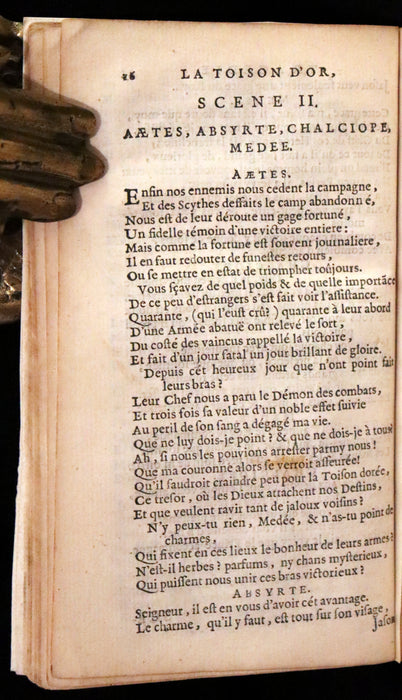 26 LA TOISON D'OR,
SCENE II.
AÆTES, ABSYRTE, CHALCIOPE,
MEDEE.
AÆTES.
Enfin nos ennemis nous cedent la campagne,
Et des Scythes deffaits le camp abandonné,
Nous est de leur déroute un gage fortuné,
Un fidelle témoin d'une victoire entiere:
Mais comme la fortune est souvent journaliere,
Il en faut redouter de funestes retours,
Ou se mettre en estat de triompher toûjours.
Vous sçavez de quel poids & de quelle importãce
De ce peu d'estrangers s'est fait voir l'assistance.
Quarante, (qui l'eust crû?) quarante à leur abord
D'une Armée abatuë ont relevé le sort,
Du costé des vaincus rappellé la victoire,
Et fait d'un jour fatal un jour brillant de gloire.
Depuis cét heureux jour que n'ont point fait
leurs bras?
Leur Chef nous a paru le Démon des combats,
Et trois fois sa valeur d'un noble effet suivie
Au peril de son sang a dégagé ma vie.
Que ne luy dois-je point? & que ne dois-je à tous?
Ah, si nous les pouvions arrester parmy nous!
Que ma couronne alors se verroit asseurée!
Qu'il faudroit craindre peu pour la Toison dorée,
Ce tresor, où les Dieux attachent nos Destins,
Et que veulent ravir tant de jaloux voisins?
N'y peux-tu rien, Medée, & n'as-tu point de
charmes,
Qui fixent en ces lieux le bonheur de leurs armes?
N'est-il herbes? parfums, ny chans mysterieux,
Qui puissent nous unir ces bras victorieux?
ABSYRTE.
Seigneur, il est en vous d'avoir cét avantage.
Le charme, qu'il y faut, est tout sur son visage,
Jason